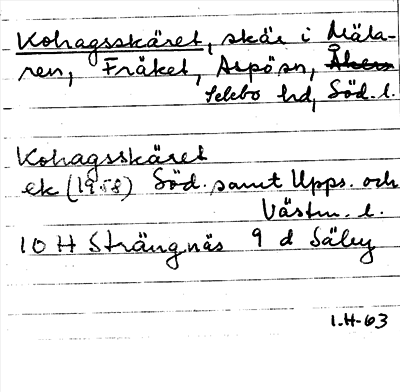 Kohagsskäret, skär i Mäla-
ren, Fråket, Aspösn, Åkers
Selebo hd, Söd. l.
Kohagsskäret
ek (1958) Söd. samt Upps. och
Västm. l.
10 H Strängnäs 9 d Säby
I.H-63